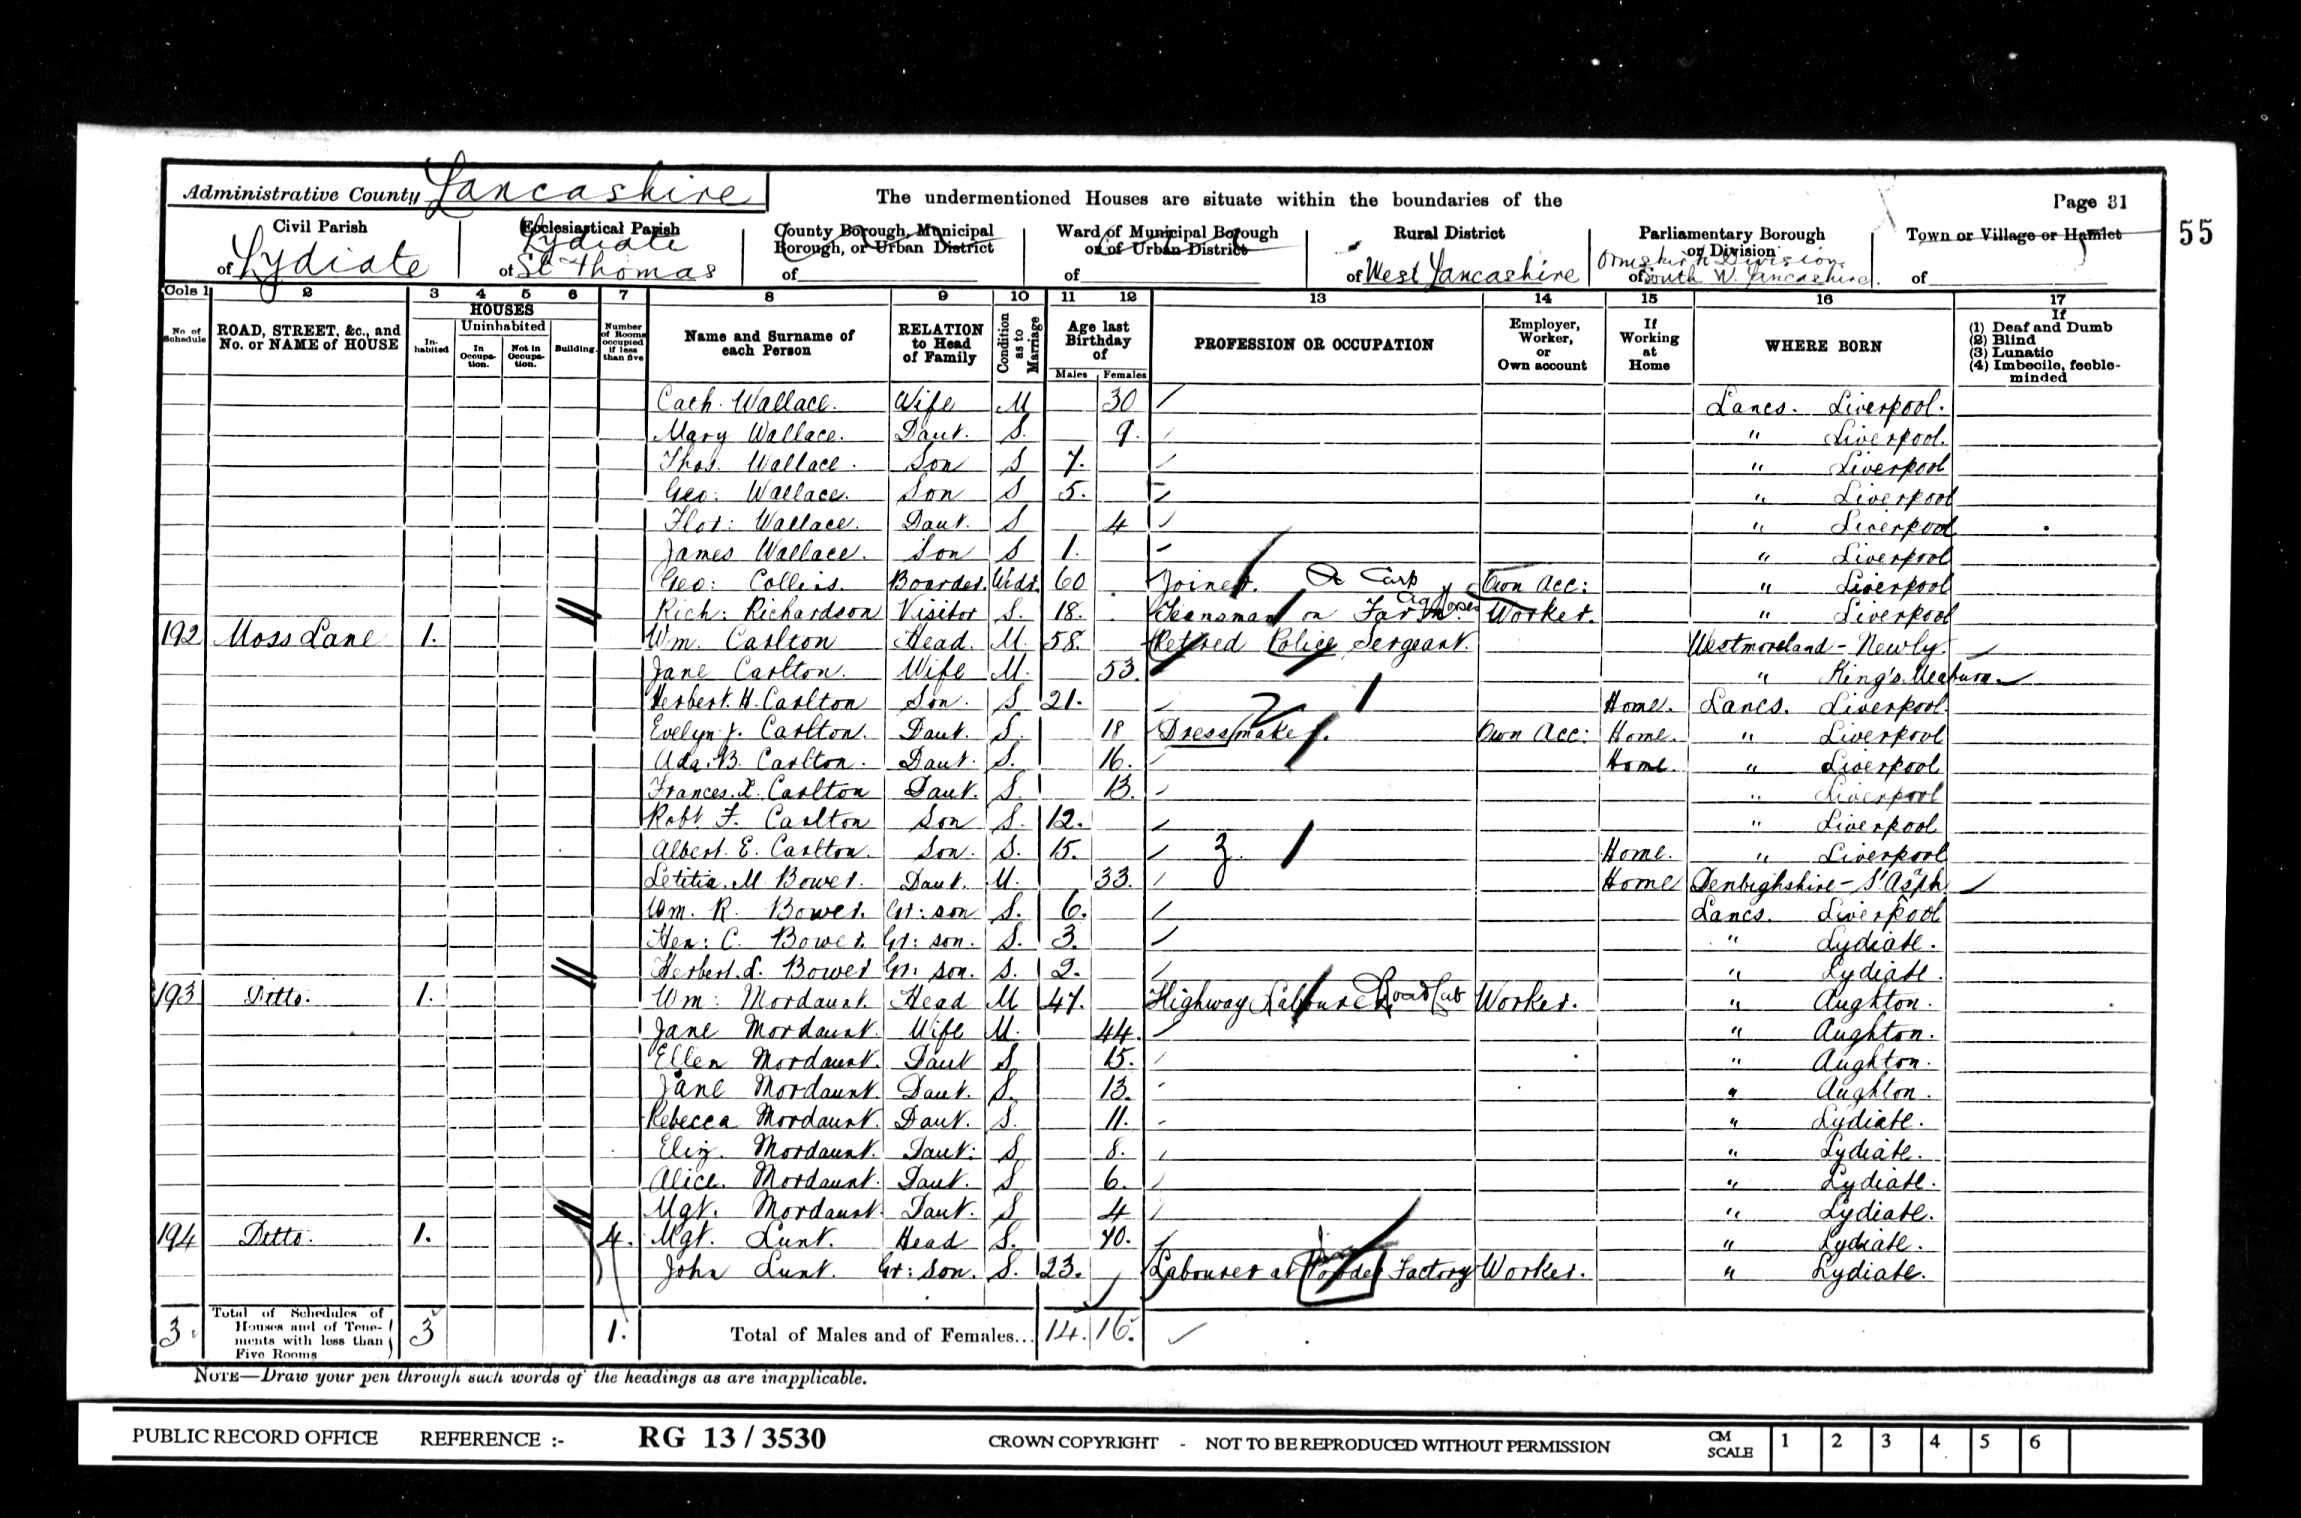 Administrative County Lancashire
The undermentioned Houses are situate within the boundaries of the
Page 31
55
Civil Parish
of Lydiate
Ecclesiastical Parish
of Lydiate St Thomas
County Borough, Municipal Borough, or Urban District
of
Ward of Municipal Borough or of Urban District
of
Rural District
of West Lancashire
Parliamentary Borough or Division
of Ormskirk Division South W. Lancashire.
Town or Village or Hamlet
of
Cols 1 2 3 4 5 6 7 8 9 10 11 12 13 14 15 16 17
No. of Schedule
ROAD, STREET, &c., and No. or NAME of HOUSE
HOUSES
Inhabited
Uninhabited
In Occupation.
Not in Occupation.
Building.
Number of Rooms occupied if less than five
Name and Surname of each Person
RELATION to Head of Family
Condition as to Marriage
Age last Birthday of
Males Females
PROFESSION OR OCCUPATION
Employer, Worker, or Own account
If Working at Home
WHERE BORN
If
(1) Deaf and Dumb
(2) Blind
(3) Lunatic
(4) Imbecile, feeble-minded
Cath. Wallace. Wife M 30 Lancs. Liverpool.
Mary Wallace. Daut. S. 9. " Liverpool.
Thos. Wallace. Son S 7. " Liverpool
Geo: Wallace. Son S 5. " Liverpool
Flor: Wallace. Daut. S 4 " Liverpool
James Wallace. Son S 1. " Liverpool
Geo: Collins. Boarder. Widr. 60 Joiner. Carp Own Acc: " Liverpool
Rich: Richardson Visitor S. 18. Teamsman on Farm. Worker. " Liverpool
192 Moss Lane 1. Wm. Carlton Head. M. 58. Retired Police Sergeant. Westmoreland - Newly
Jane Carlton. Wife M. 53. " King's Meaburn
Herbert. H. Carlton Son. S 21. Home. Lancs. Liverpool.
Evelyn J. Carlton. Daut. S. 18 Dressmaker. Own Acc: Home. " Liverpool
Ada. B. Carlton. Daut. S. 16. Home. " Liverpool
Frances. L. Carlton Daut. S. 13. " Liverpool
Robt. F. Carlton Son S. 12. " Liverpool
Albert. E. Carlton. Son. S. 15. Home. " Liverpool
Letitia. M. Bower. Daut. M. 33. Home Denbighshire - St Asaph
Wm. R. Bower. Gr: son S. 6. Lancs. Liverpool
Hen: C. Bower. Gr: son. S. 3. " Lydiate.
Herbert. S. Bower Gr: son. S. 2. " Lydiate.
193 Ditto. 1. Wm: Mordaunt. Head M 47. Highway Labourer. Road Lab Worker. " Aughton.
Jane Mordaunt. Wife M. 44. " Aughton.
Ellen Mordaunt. Daut S 15. " Aughton.
Jane Mordaunt. Daut. S. 13. " Aughton.
Rebecca Mordaunt. Daut. S. 11. " Lydiate.
Eliz. Mordaunt. Daut: S 8. " Lydiate.
Alice. Mordaunt. Daut. S 6. " Lydiate.
Mgt. Mordaunt. Daut. S 4 " Lydiate.
194 Ditto. 1. 4. Mgt. Lunt. Head S. 70. " Lydiate.
John Lunt. Gr: son. S. 23. Labourer at Powder Factory Worker. " Lydiate.
3. Total of Schedules of Houses and of Tenements with less than Five Rooms 3 1. Total of Males and of Females... 14. 16.
NOTE—Draw your pen through such words of the headings as are inapplicable.
PUBLIC RECORD OFFICE REFERENCE :- RG 13 / 3530 CROWN COPYRIGHT - NOT TO BE REPRODUCED WITHOUT PERMISSION CM SCALE 1 2 3 4 5 6